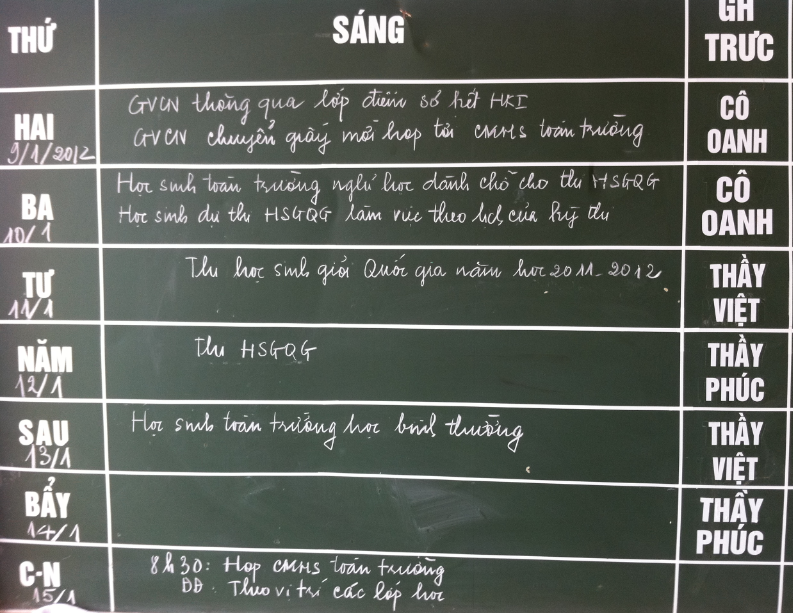 THỨ
SÁNG
GH
TRƯC
HAI
9/1/2012
GVCN thông qua lớp điểm số hết HKI
GVCN chuyển giấy mời họp tới CMHS toàn trường
CÔ
OANH
BA
10/1
Học sinh toàn trường nghỉ học dành chỗ cho thi HSGQG
Học sinh dự thi HSGQG làm việc theo lịch của kỳ thi
CÔ
OANH
TƯ
11/1
Thi học sinh giỏi Quốc gia năm học 2011-2012
THẦY
VIỆT
NĂM
12/1
Thi HSGQG
THẦY
PHÚC
SAU
13/1
Học sinh toàn trường học bình thường
THẦY
VIỆT
BẨY
14/1
THẦY
PHÚC
C-N
15/1
8h30: Họp CMHS toàn trường
ĐĐ: Theo vị trí các lớp học